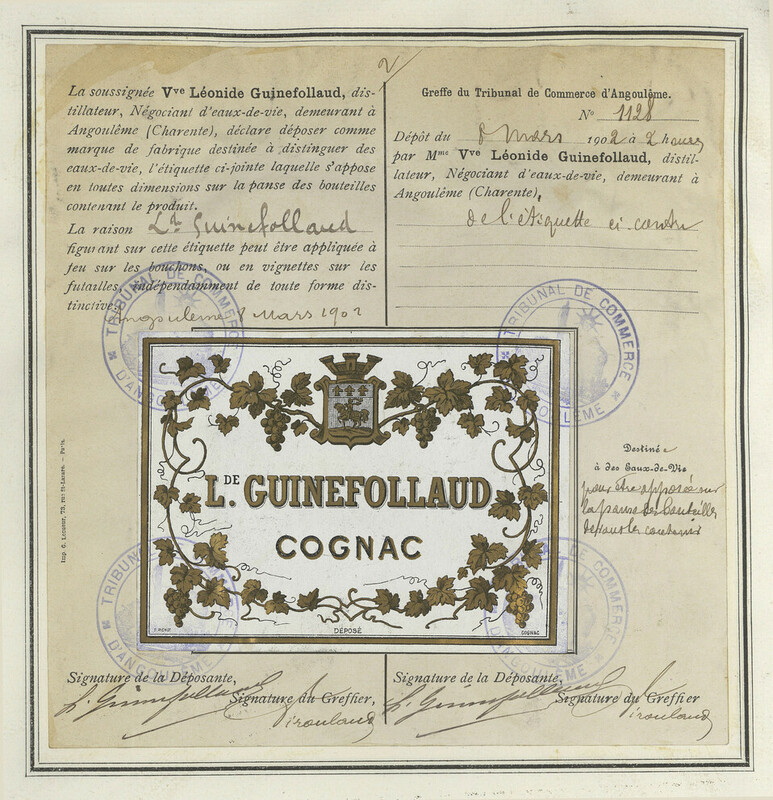 2
La soussignée Vve Léonide Guinefollaud, dis-
tillateur, Négociant d'eaux-de-vie, demeurant à
Angoulême (Charente), déclare déposer comme
marque de fabrique destinée à distinguer des
eaux-de-vie, l'étiquette ci-jointe laquelle s'appose
en toutes dimensions sur la panse des bouteilles
contenant le produit.
La raison Ld Guinefollaud
figurant sur cette étiquette peut être appliquée à
feu sur les bouchons, ou en vignettes sur les
futailles, indépendamment de toute forme dis-
tinctive.
Angoulême 8 Mars 1902
Greffe du Tribunal de Commerce d'Angoulême.
No 1128
Dépôt du 8 Mars 1902 à 2 heures
par Mme Vve Léonide Guinefollaud, distil-
lateur, Négociant d'eaux-de-vie, demeurant à
Angoulême (Charente),
de l'étiquette ci contre
TRIBUNAL DE COMMERCE
D'ANGOULÊME
TRIBUNAL DE COMMERCE
D'ANGOULÊME
L.DE GUINEFOLLAUD
COGNAC
DÉPOSÉ
COGNAC
Destinée
à des Eaux-de-Vie
pour être apposée sur
la panse des bouteilles
devant les contenir
TRIBUNAL DE COMMERCE
D'ANGOULÊME
TRIBUNAL DE COMMERCE
D'ANGOULÊME
Signature de la Déposante,
L. Guinefollaud
Signature du Greffier,
Signature de la Déposante,
L. Guinefollaud
Signature du Greffier